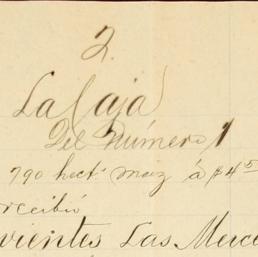 2.
La Caja
Del Número 1
790 hect. maiz á $4 5
recibió
vientes Las Merc